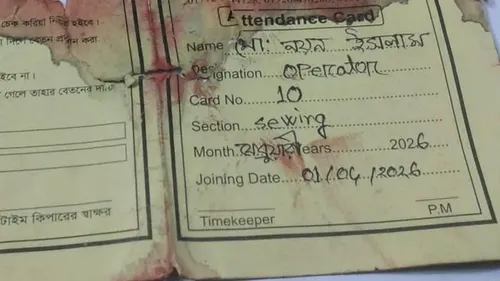 চেক করিয়া হইবে।
বেতন করা
ইবে না।
গেলে তাহার বেতনের
টাইম কিপারের স্বাক্ষর
Attendance Card
Name মো: নয়ন ইসলাম
Designation operator
Card No. 10
Section sewing
Month Years 2026
Joining Date 01/04/2026
Timekeeper P.M